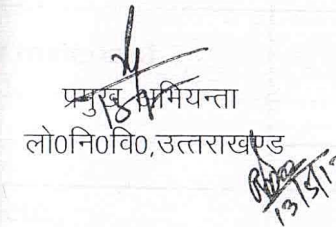 प्रमुख अभियन्ता
लो0नि0वि0,उत्तराखण्ड
13/5/1